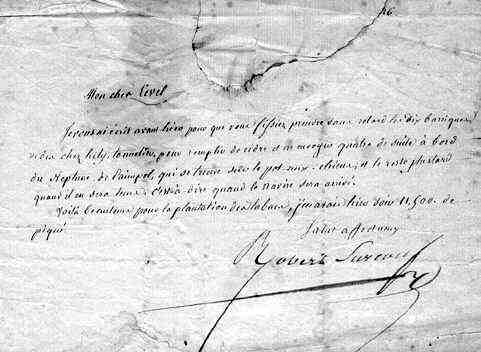 Mon cher
Je vous ai écrit avant hier pour que vous fissiez prendre sans retard les dix barriques
vides chez tonnelier, pour remplir de cidre, d'en envoyer quatre de suite à bord
du Neptune de Paimpol, qui se trouve sur le et le reste plus tard
quand il en sera tems. C'est à dire quand le navire sera arrivé.
Voilà beau tems pour la plantation des tabacs, j'en avais hier soir 11,500. de
piqué.
Salut affectueux
Robert Surcouf